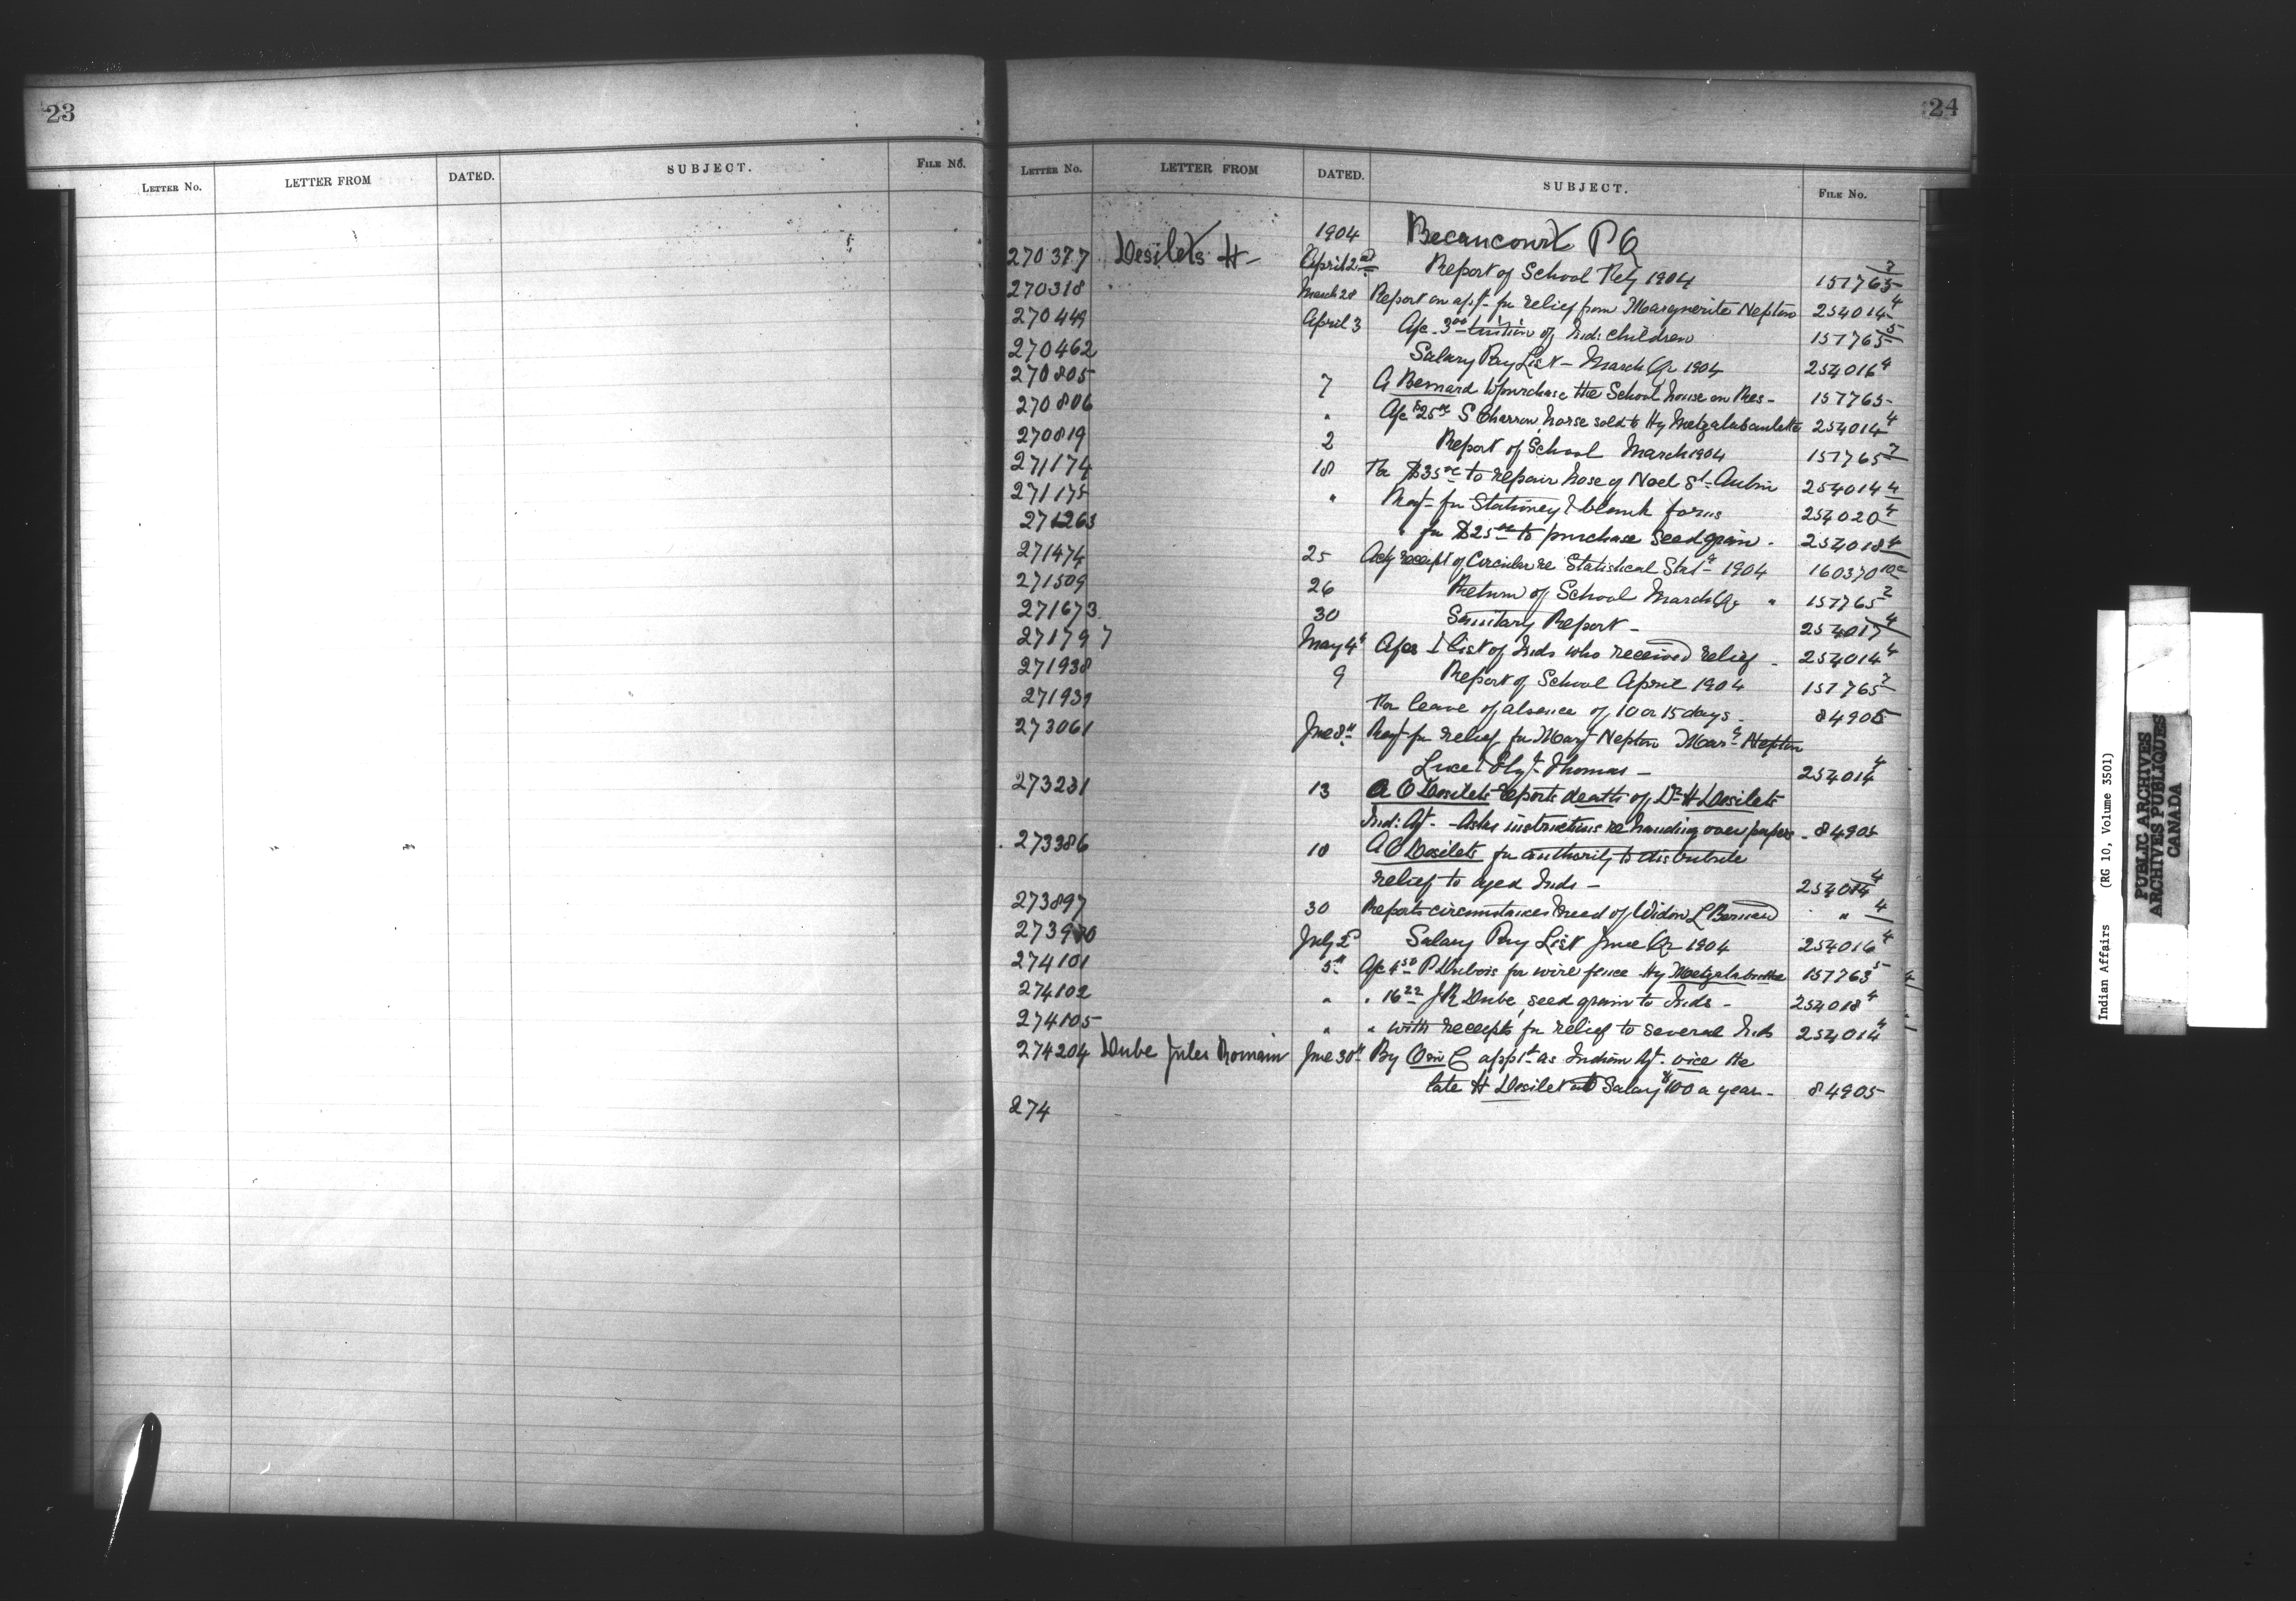 23
LETTER NO. LETTER FROM DATED. SUBJECT. FILE NO.
24
LETTER NO. LETTER FROM DATED. SUBJECT. FILE NO.
1904 Becancourt P Q
270377 Desilets H- April 2nd Report of School Feby 1904 157765 7
270318 March 28 Report on apt for relief from Marguerite Nepton 254014 4
270449 April 3 a/c 3 00 tuition of Inds children 157765 5
270462 Salary Pay List - March Qr 1904 254016 4
270805 7 A Bernard to purchase the School house on Res - 157765
270806 " a/c $25 00 S Charron, horse sold to Hy Metzalabanlette 254014 4
270819 2 Report of School March 1904 157765 7
271174 18 For $35 00 to repair hose of Noel St Aubin 254014 4
271175 " Reqn for Stationery & blank forms 254020 4
271263 " for $25 00 to purchase Seed grain - 254018 4
271474 25 Ack receipt of Circular re Statistical Stat 1904 160370
271509 26 Return of School March Qr " 157765 2
271673 30 Sanitary Report - 254017 4
271797 May 4th a/cs & list of Inds who received relief - 254014 4
271938 9 Report of School April 1904 157765 7
271939 For leave of absence of 10 or 15 days - 84905
273061 June 8th Reqn for relief for Mary Nepton Mar Nepton
Luce & Thomas - 254014 4
273231 13 A O Desilets reports death of Dr H Desilets
Ind: Agt - Asks instructions re handing over papers - 84905
273386 18 A O Desilets for authority to distribute
relief to aged Inds - 254014 4
273897 30 Reports circumstances & need of Widow L Bernard " 4
273930 July 2d Salary Pay List June Qr 1904 254016 4
274101 5th a/c 4 50 P Dubois for wire fence Hy Metzalabanlette 157765 5
274102 " " 16 22 J R Dube, seed grain to Inds - 254018 4
274105 " " with receipts for relief to several Inds 254014 4
274204 Dube Jules Romain June 30th By O in C appt as Indian Agt. vice the
late H Desilets at Salary $100 a year - 84905
274
Indian Affairs (RG 10, Volume 3501)
PUBLIC ARCHIVES
ARCHIVES PUBLIQUES
CANADA